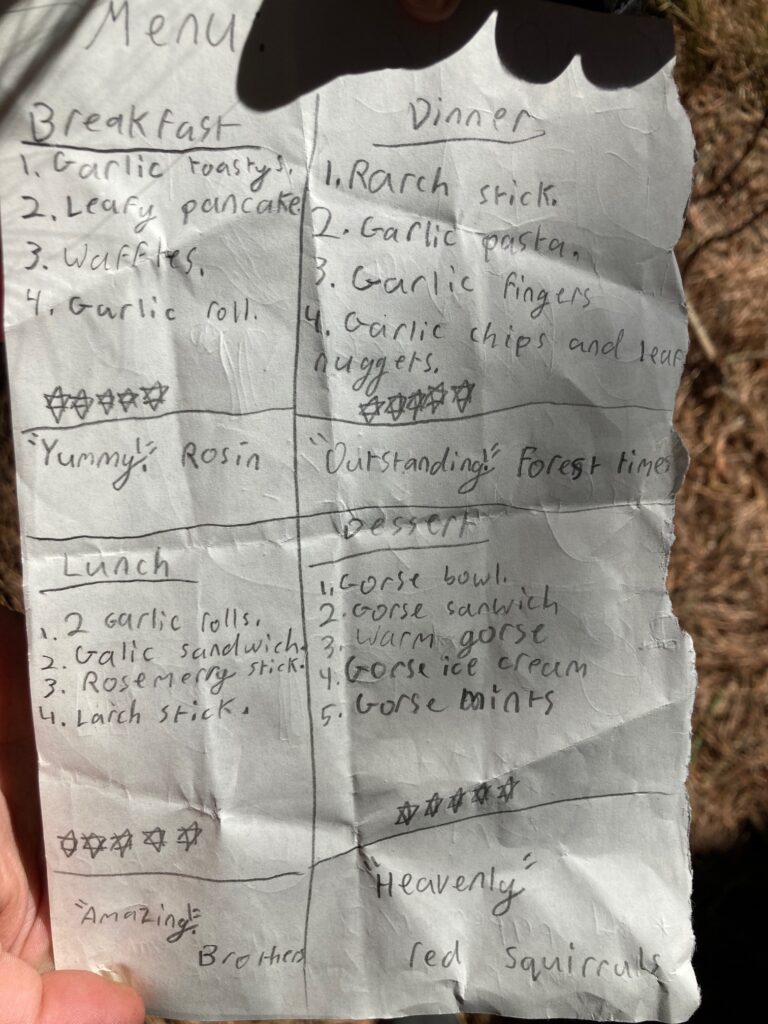 Menu
Breakfast
1. Garlic roastys.
2. Leafy pancake
3. Waffles.
4. Garlic roll.
"Yummy!" Rosin
Dinner
1. Rarch stick.
2. Garlic pasta.
3. Garlic fingers
4. Garlic chips and leaf
nuggets.
"Outstanding!" Forest times
Lunch
1. 2 Garlic rolls.
2. Galic sandwich.
3. Rosemerry stick.
4. Larch stick.
"Amazing!"
Brothers
Dessert
1. Gorse bowl.
2. Gorse sanwich
3. Warm gorse
4. Gorse ice cream
5. Gorse mints
"Heavenly"
red squirruls